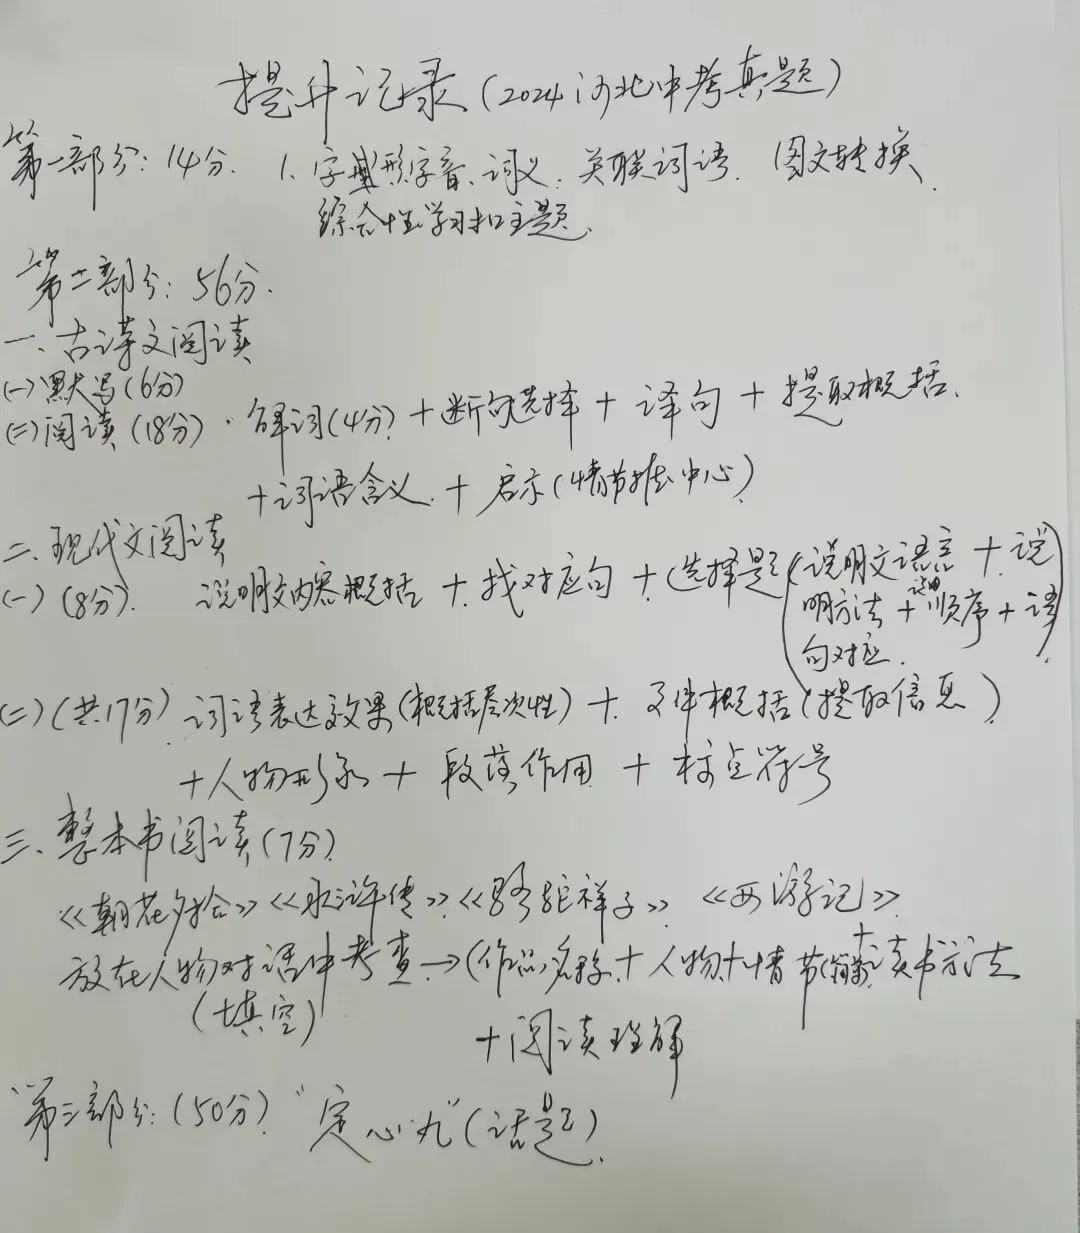 提升记录(2024河北中考真题)
第一部分:14分. 1.字形字音、词义.关联词语.图文转换.
综合性学习扣主题.
第二部分:56分.
一、古诗文阅读
(一)默写(6分)
(二)阅读(18分).解词(4分)+断句选择+译句+提取概括.
+词语含义.+启示(情节推中心)
二、现代文阅读
(一)(8分). 说明文内容概括+找对应句+选择题(说明文语言+说
明方法+说明顺序+语
句对应.)
(二)(共17分)词语表达效果(概括层次性)+文件概括(提取信息)
+人物形象+段落作用+标点符号
三、整本书阅读(7分)
《朝花夕拾》《水浒传》《骆驼祥子》《西游记》
放在人物对话中考查→(作品名称+人物+情节+读书方法
(填空)
+阅读理解
第三部分:(50分)"定心丸"(话题).